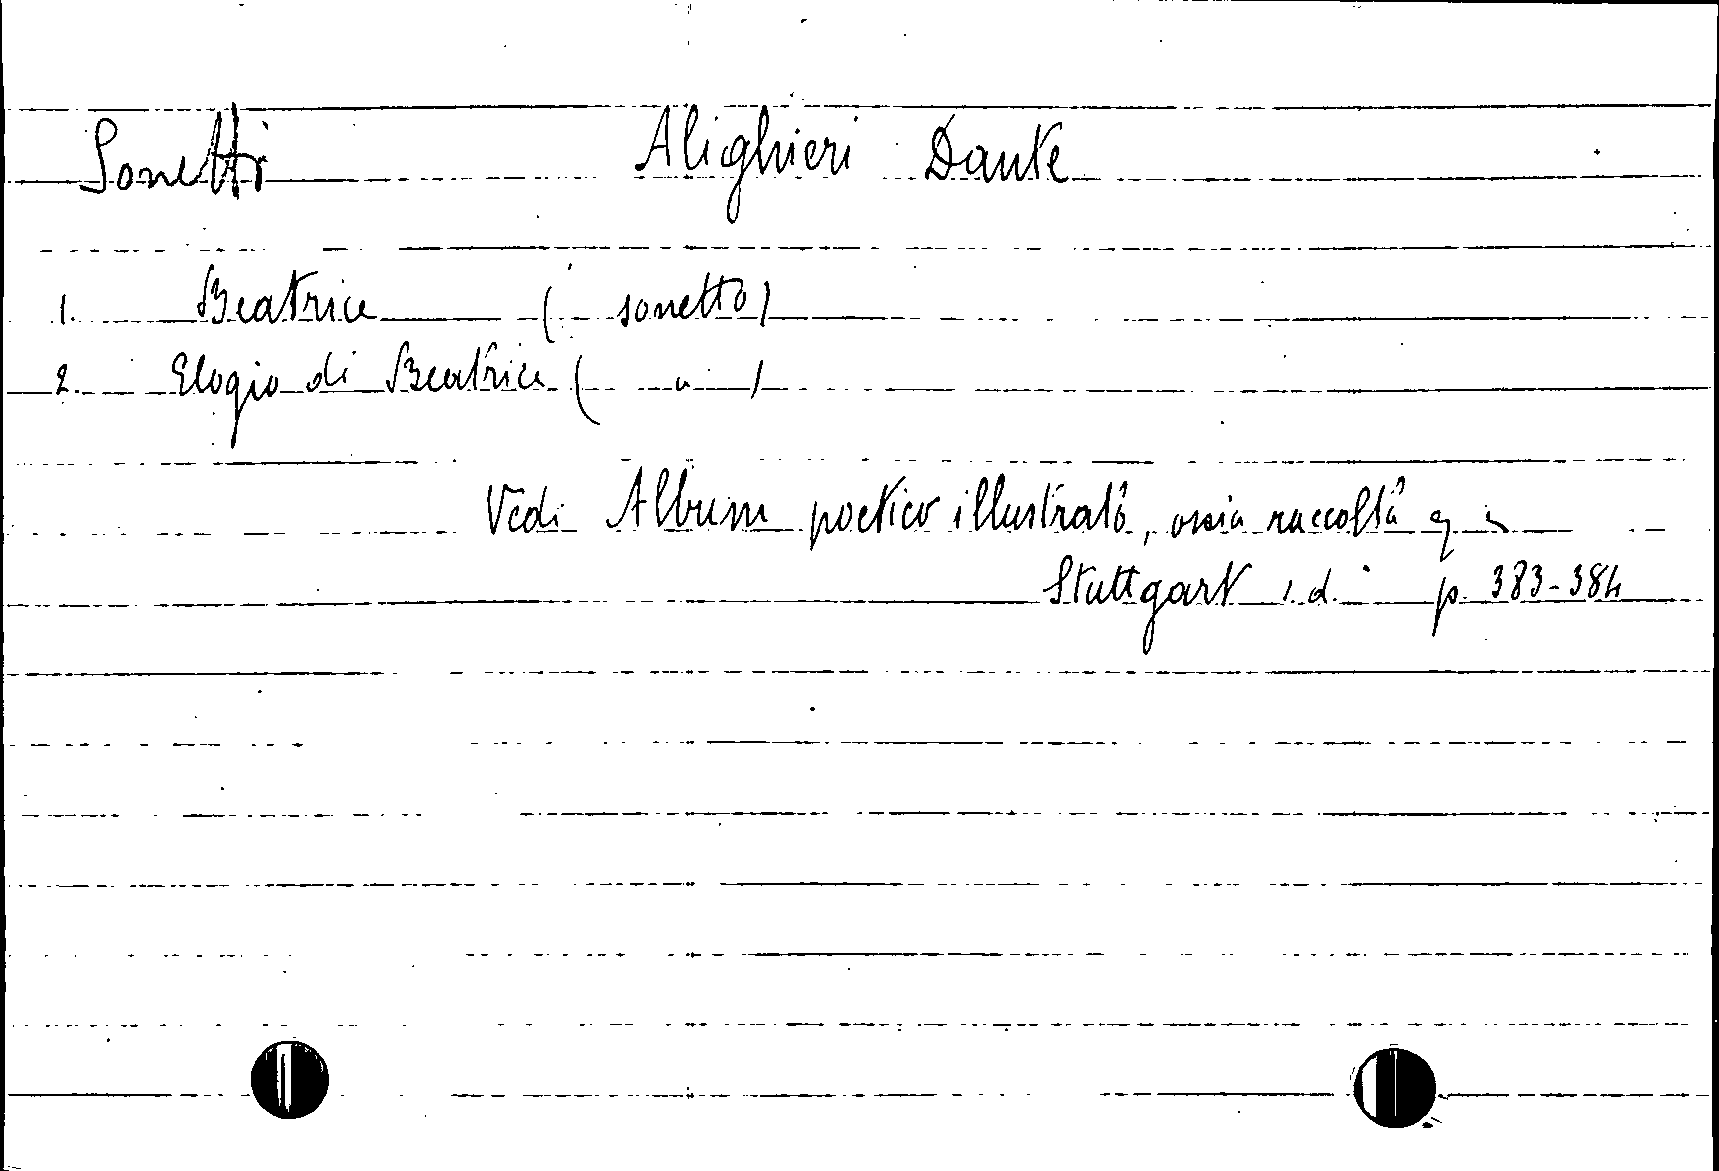 Sonetti Alighieri Dante
1. Beatrice ( sonetto)
2. Elogio di Beatrice ( " )
Vedi Album poetico illustrato, ossia raccolta
Stuttgart s.d. p. 383-384